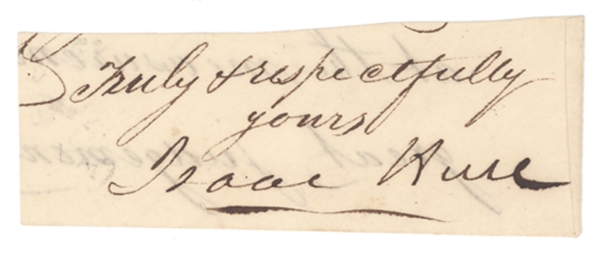 Truly & respectfully
yours
Isaac Hull